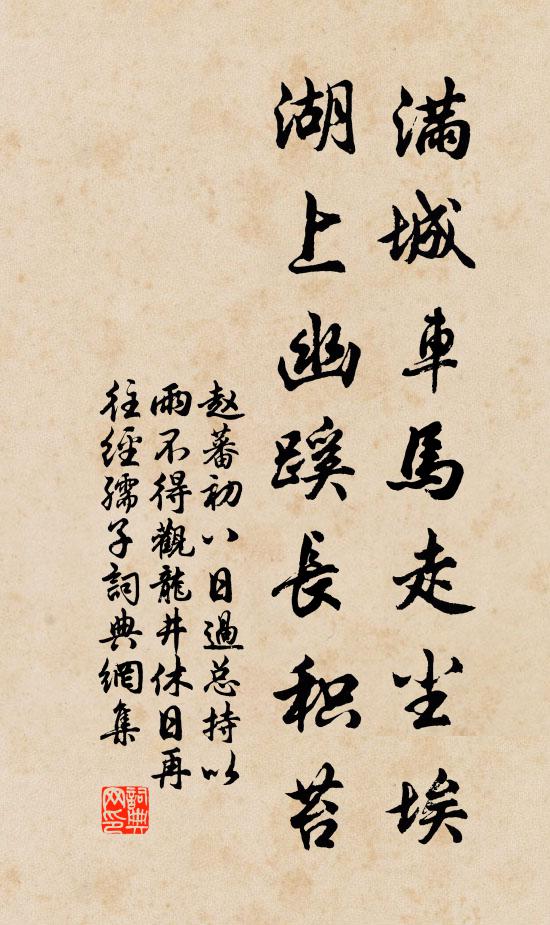 满城車馬走尘埃
湖上幽蹊長积苔
赵蕃初八日過总持以
雨不得觀龍井休日再
往經孺子詞典網集
詞典
网印